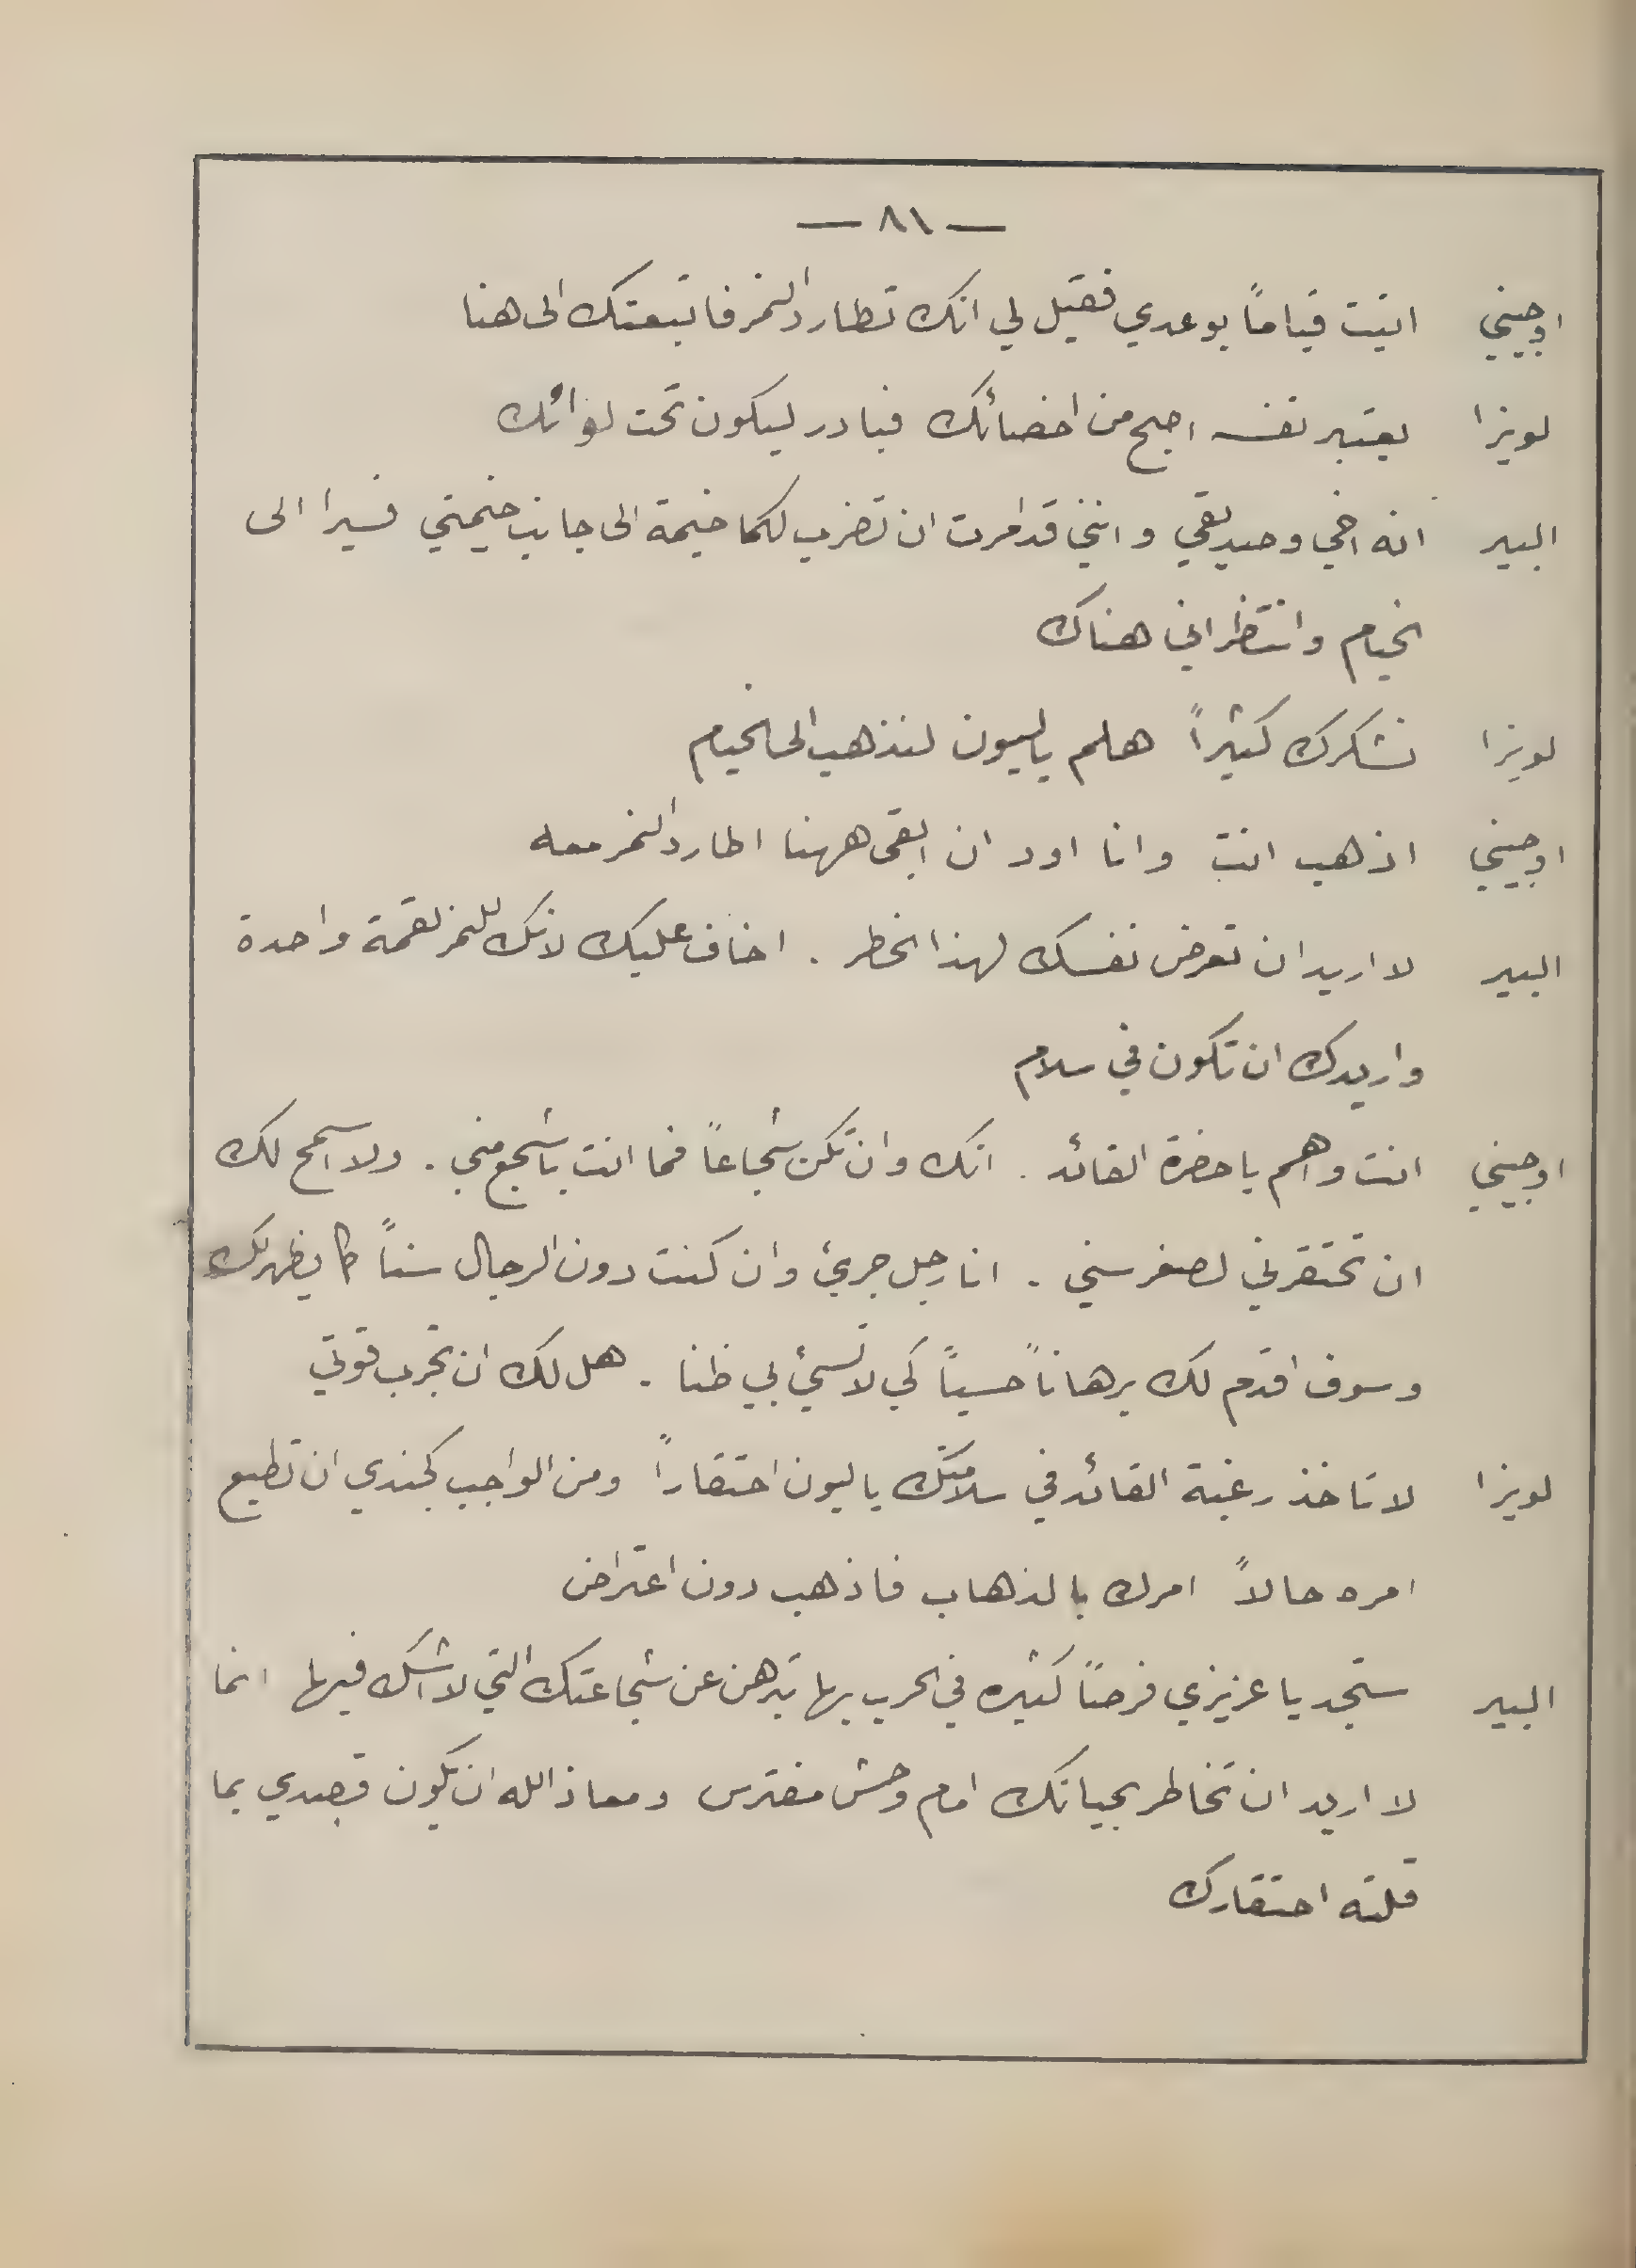 — ٨١ —
اوجيني اتيت قياماً بوعدي فقيل لي انك تطارد النمر فاتبعتك الى هنا
لويزا يعتبر نفسه اصبح من اخصائك فبادر ليكون تحت لوائك
البير انه اخي وصديقي وانني قد امرت ان تضرب لكما خيمة الى جانب خيمتي فسيرا الى
الخيام وانتظراني هناك
لويزا نشكرك كثيراً هلم ياليون لنذهب الى الخيام
اوجيني اذهب انت وانا اود ان ابقى ههنا اطارد النمر معه
البير لا اريد ان تعرض نفسك لهذا الخطر . اخاف عليك لانك للنمر لقمة واحدة
واريدك ان تكون في سلام
اوجيني انت واهم يا حضرة القائد . انك وان تكن شجاعاً فما انت باشجع مني . ولا اسمح لك
ان تحتقرني لصغر سني . انا رجل جريئ وان كنت دون الرجال سناً كما يظهر لك
وسوف اقدم لك برهاناً حسياً كي لا تسيئ بي ظنا . هل لك ان تجرب قوتي
لويزا لا تاخذ رغبة القائد في سلامتك ياليون احتقاراً ومن الواجب كجندي ان تطيع
امره حالاً امرك بالذهاب فاذهب دون اعتراض
البير ستجد يا عزيزي فرصاً كثيره في الحرب بها تبرهن عن شجاعتك التي لا اشك فيها انما
لا اريد ان تخاطر بحياتك امام وحش مفترس ومعاذ الله ان يكون قصدي بما
قلته احتقارك